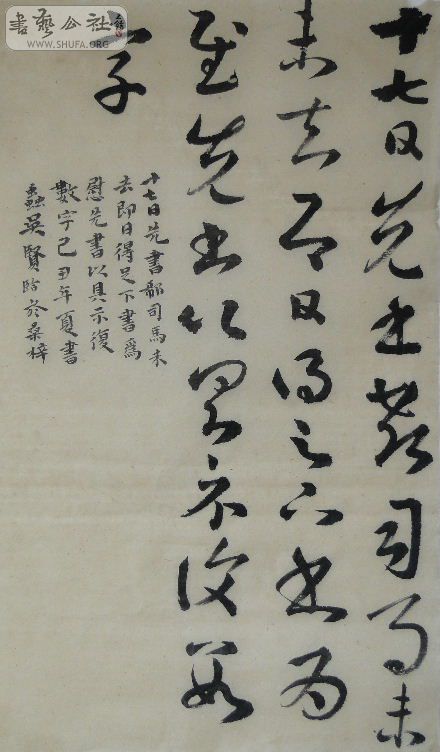 十七日先書郗司馬未
未去即日得足下書為
慰先書以具示復數
字
十七日先書郗司馬未
去即日得足下書爲
慰先書以具示復
數字己丑年夏書
蠡吳賢於桑梓
書藝公社
www.SHUFA.ORG